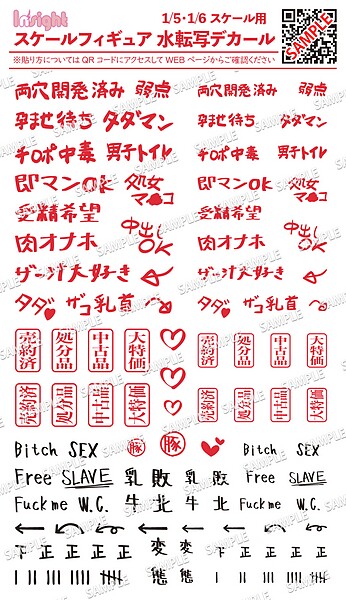 Insight
1/5・1/6 スケール用
スケールフィギュア 水転写デカール
※貼り方については QR コードにアクセスして WEB ページからご確認ください
SAMPLE
両穴開発済み 弱点 両穴開発済み 弱点
孕ませ待ち タダマン 孕ませ待ち タダマン
チロポ中毒 男子トイレ チロポ中毒 男子トイレ
即マンOK 処女マ コ 即マンOK 処女マ コ
受精希望 受精希望
肉オナホ 中出しOK 肉オナホ 中出しOK
ザー汁大好き ザー汁大好き
タダ♥ ザコ乳首 タダ♥ ザコ乳首
売約済 処分品 中古品 大特価 ♡ 売約済 処分品 中古品 大特価
売約済 処分品 中古品 大特価 ♡ 売約済 処分品 中古品 大特価
Bitch SEX 豚 豚 Bitch SEX
Free SLAVE 乳 敗 乳 敗 Free SLAVE
Fuck me W.C. 牛 北 牛 北 Fuck me W.C.
下 正 正 正 変 変 下 正 正 正
態 態